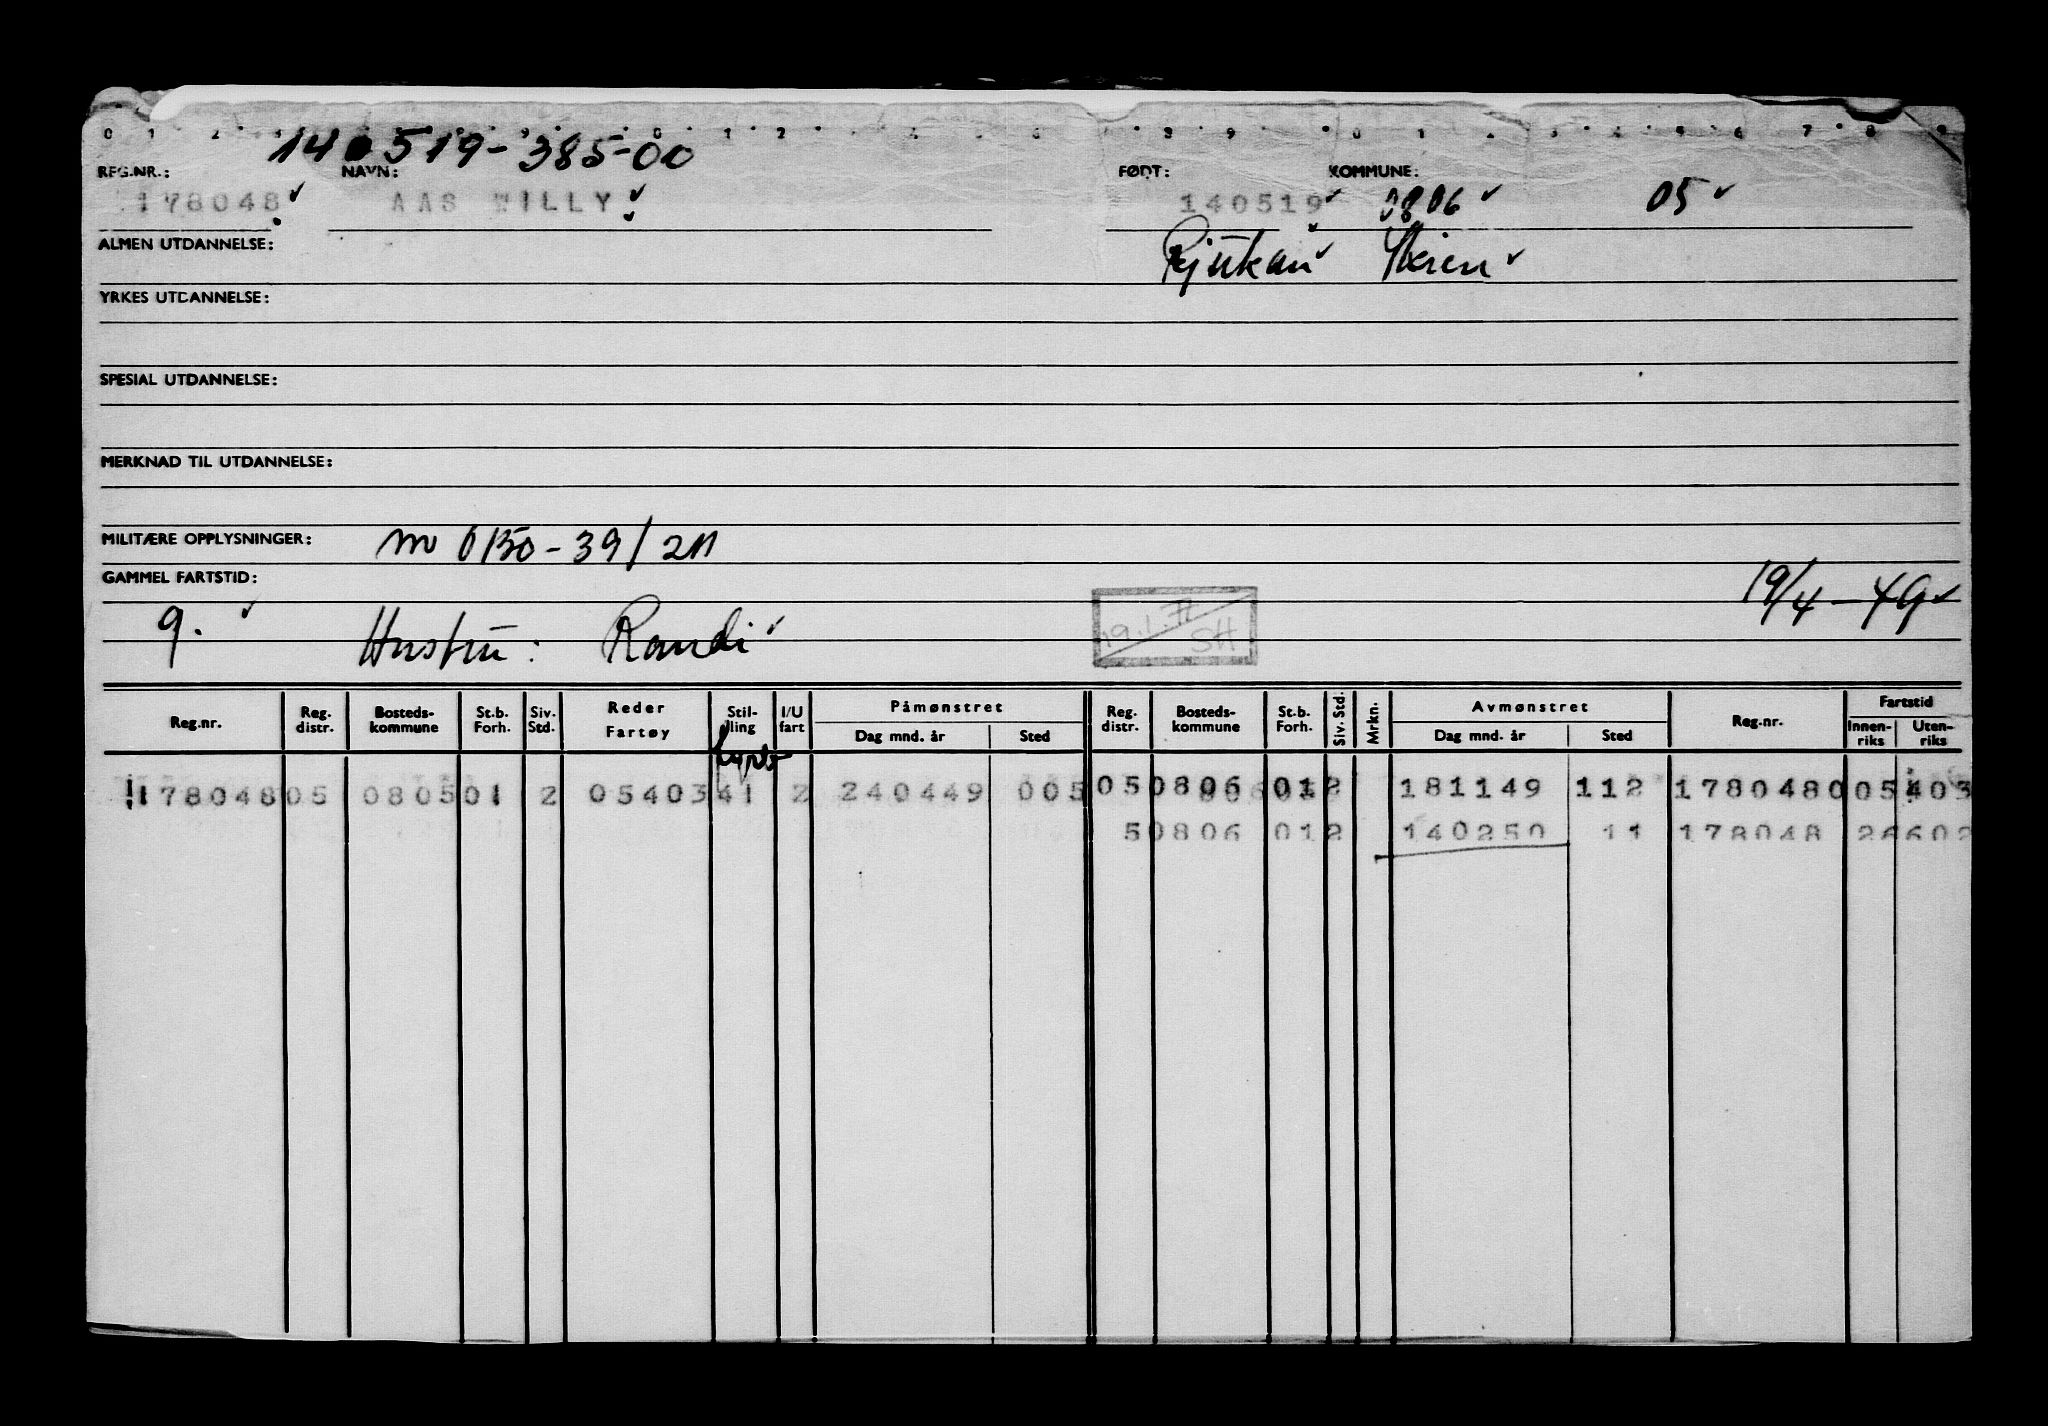 140519-385-00
REG.NR.: NAVN: FØDT: KOMMUNE:
178048 AAS WILLY 140519 0806 05
ALMEN UTDANNELSE: Rjukan Skien
YRKES UTDANNELSE:
SPESIAL UTDANNELSE:
MERKNAD TIL UTDANNELSE:
MILITÆRE OPPLYSNINGER: m 0150-39/211
GAMMEL FARTSTID: 19/4-49
9. Hustru: Randi
19.1.77 SH
Reg.nr. Reg. distr. Bosteds- kommune St.b. Forh. Siv. Std. Reder Fartøy Stil- ling I/U fart Påmønstret Dag mnd. år Sted Reg. distr. Bosteds- kommune St.b. Forh. Siv. Std. Mrkn. Avmønstret Dag mnd. år Sted Reg.nr. Fartstid Innen- riks Uten- riks
178048 05 0805 01 2 05403 41 2 240449 005 05 0806 01 2 181149 112 178048 0 05 403
5 0806 01 2 140250 11 178048 26 602